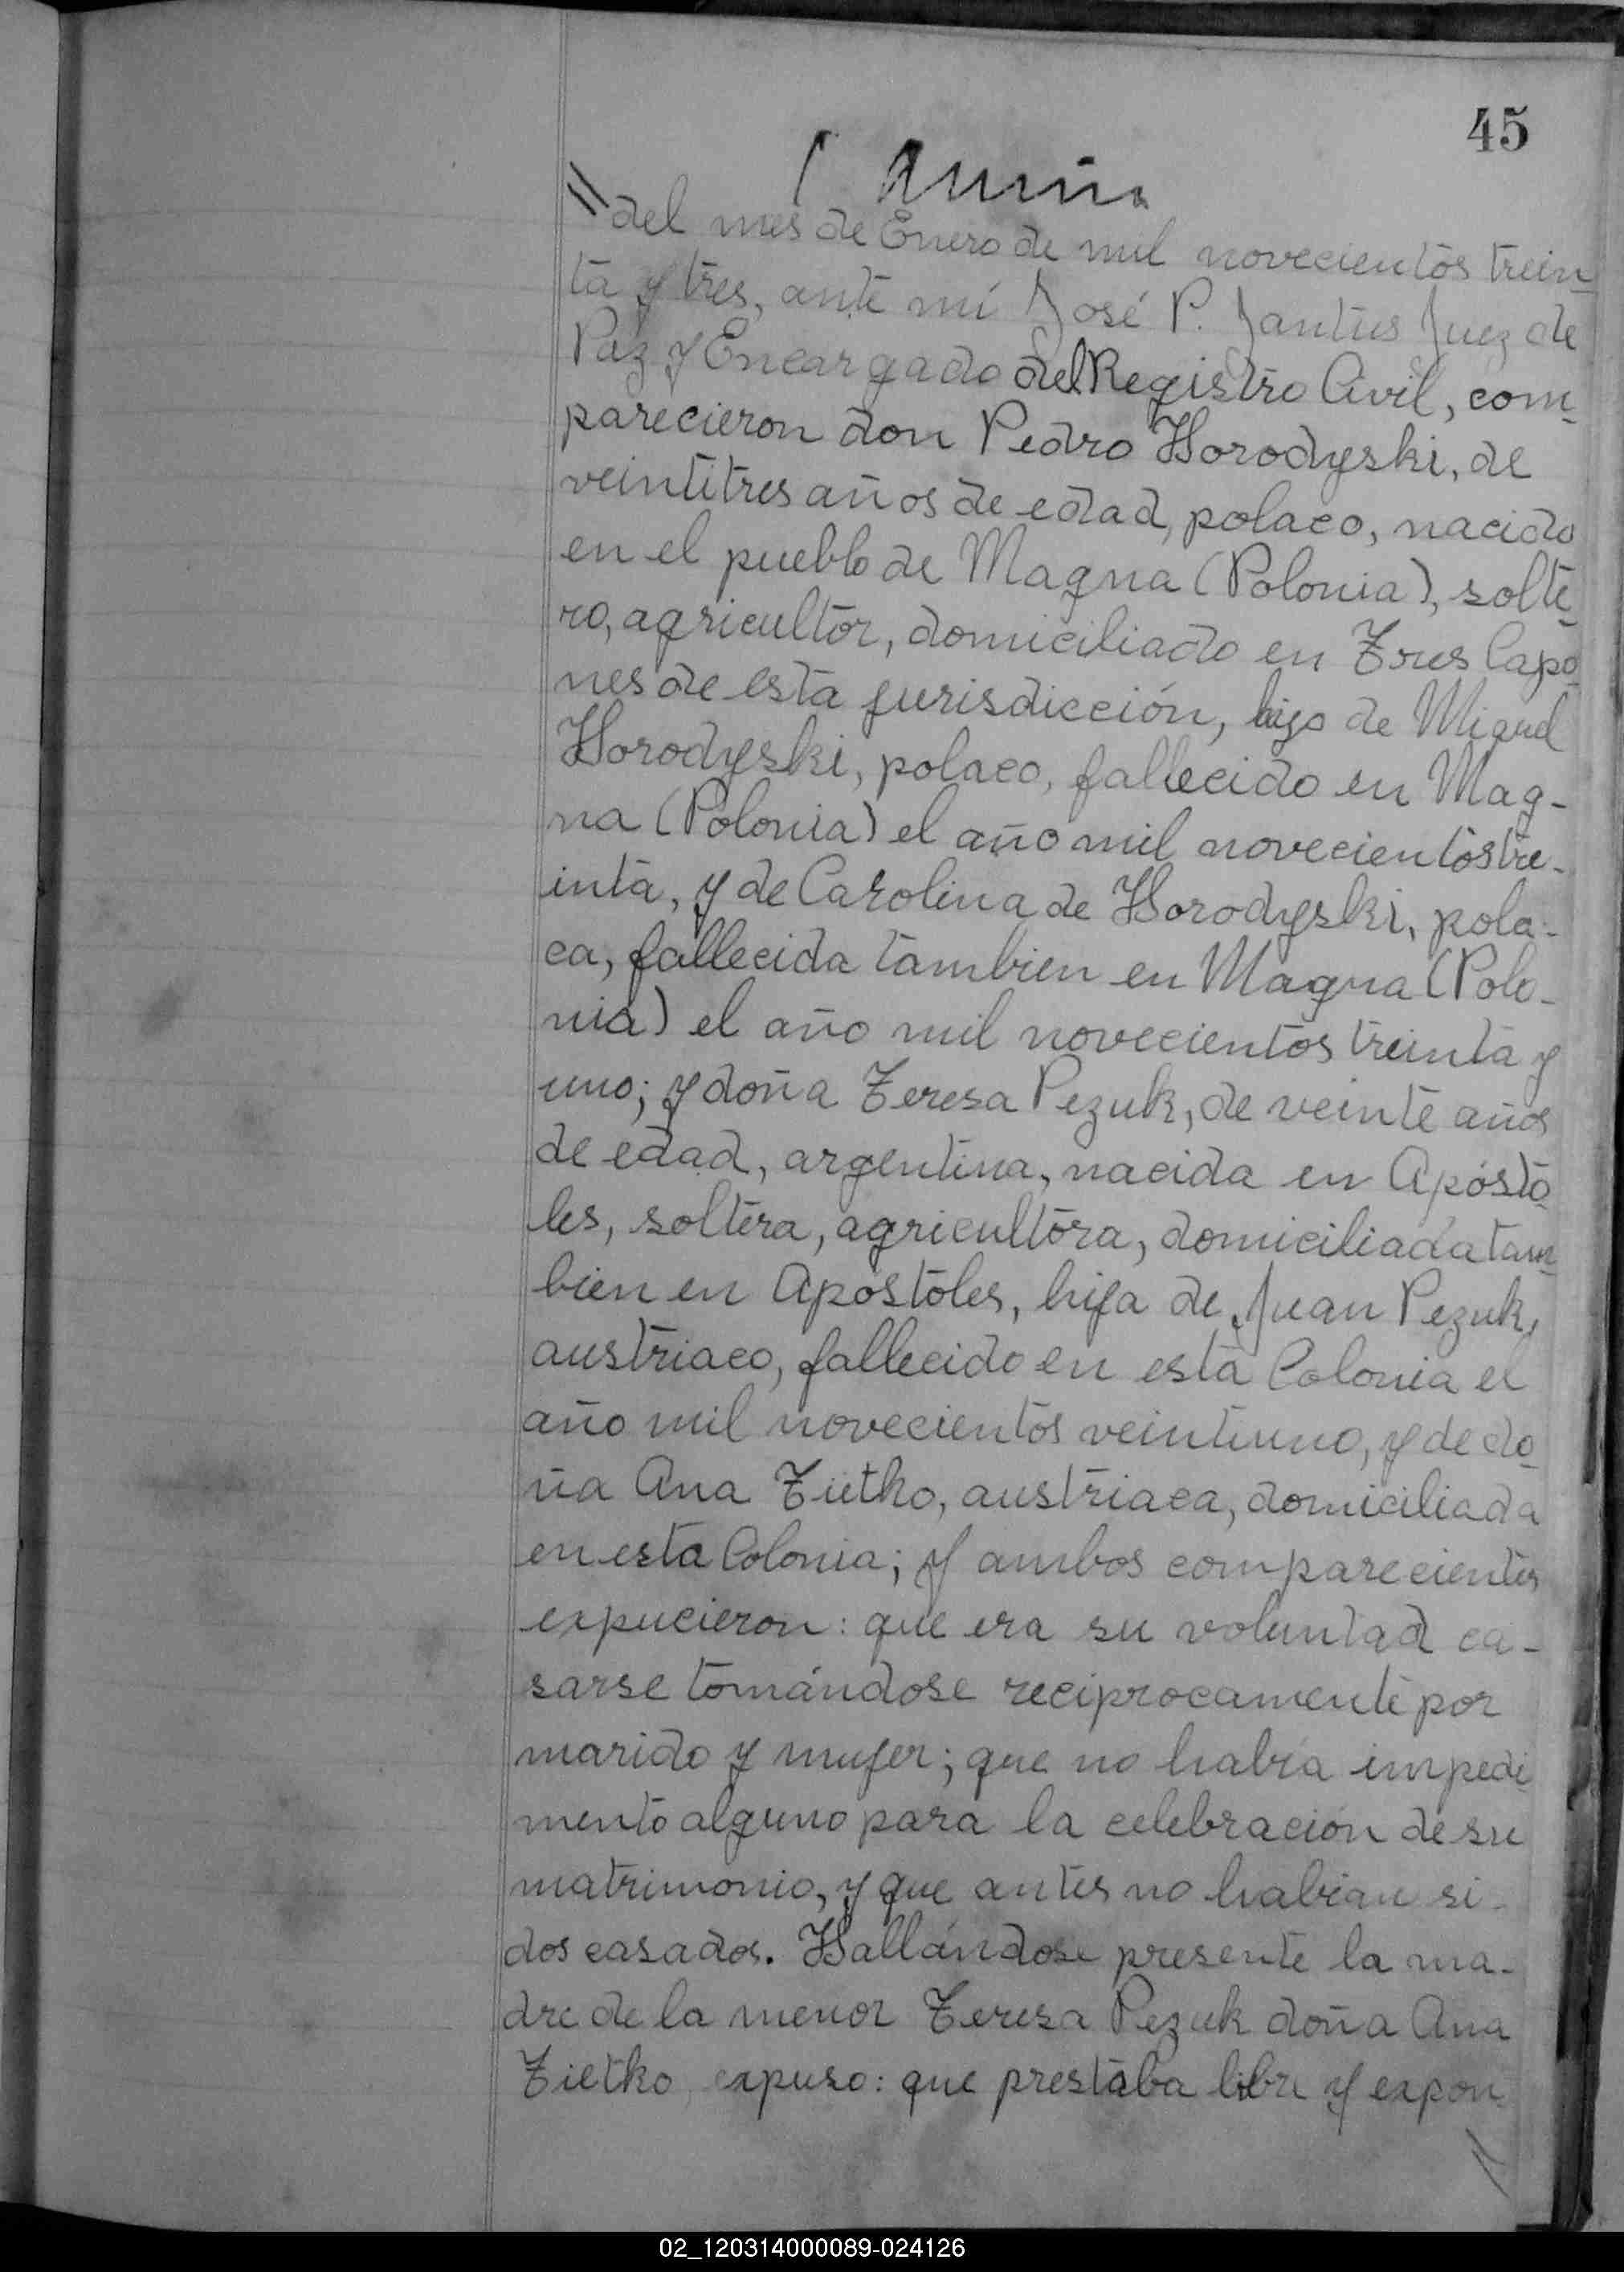 45
del mes de Enero de mil novecientos trein
ta y tres, ante mí José P. Jantus Juez de
Paz y Encargado del Registro Civil, com
parecieron don Pedro Horodyski, de
veintitres años de edad, polaco, nacido
en el pueblo de Magna (Polonia), solte
ro, agricultor, domiciliado en Tres Capo
nes de esta jurisdicción, hijo de Miguel
Horodyski, polaco, fallecido en Mag-
na (Polonia) el año mil novecientos tre-
inta, y de Carolina de Horodyski, pola-
ca, fallecida tambien en Magna (Polo-
nia) el año mil novecientos treinta y
uno; y doña Teresa Pezuk, de veinte años
de edad, argentina, nacida en Apósto
les, soltera, agricultora, domiciliada tam
bien en Apóstoles, hija de Juan Pezuk,
austriaco, fallecido en esta Colonia el
año mil novecientos veintiuno, y de do
ña Ana Tietko, austriaca, domiciliada
en esta Colonia; y ambos comparecientes
expucieron: que era su voluntad ca-
sarse tomándose reciprocamente por
marido y mujer; que no había impedi
mento alguno para la celebración de su
matrimonio, y que antes no habian si-
dos casados. Hallándose presente la ma-
dre de la menor Teresa Pezuk doña Ana
Tietko, expuso: que prestaba libre y expon
02_120314000089-024126